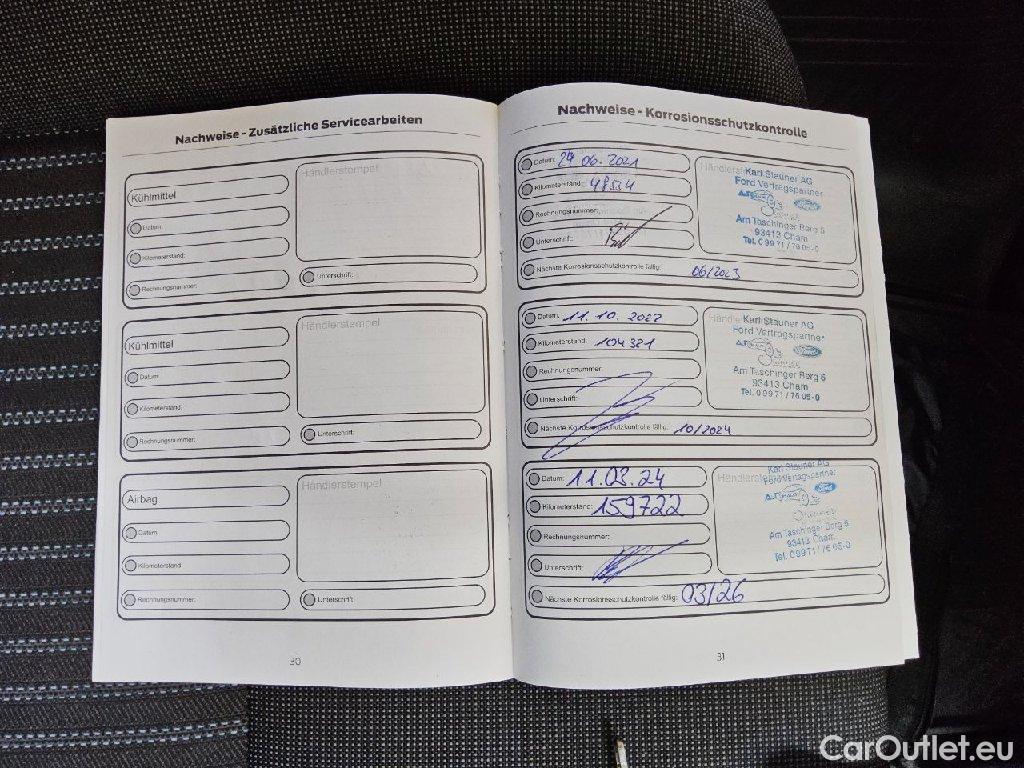 Nachweise - Zusätzliche Servicearbeiten
Kühlmittel
Händlerstempel
Datum
Kilometerstand:
Rechnungsnummer:
Unterschrift:
Kühlmittel
Händlerstempel
Datum
Kilometerstand:
Rechnungsnummer:
Unterschrift:
Airbag
Händlerstempel
Datum
Kilometerstand
Rechnungsnummer:
Unterschrift
30
Nachweise - Korrosionsschutzkontrolle
Datum: 06.2021
Kilometerstand:
Rechnungsnummer:
Unterschrift:
Nächste Korrosionsschutzkontrolle fällig: 06/2023
Karl Stauner AG
Ford Vertragspartner
Am Taschinger Berg 6
93413 Cham
Tel. 0 99 71 / 76 05-0
Datum: 11.10.2022
Kilometerstand: 104321
Rechnungsnummer
Unterschrift:
Nächste Korrosionsschutzkontrolle fällig: 10/2024
Karl Stauner AG
Ford Vertragspartner
Am Taschinger Berg 6
93413 Cham
Tel. 0 99 71 / 76 05-0
Datum: 11.03.24
Kilometerstand: 159722
Rechnungsnummer:
Unterschrift:
Nächste Korrosionsschutzkontrolle fällig: 03/26
Händlerstempel
Karl Stauner AG
Ford Vertragspartner
Am Taschinger Berg 6
93413 Cham
Tel. 0 99 71 / 76 05-0
31
CarOutlet.eu